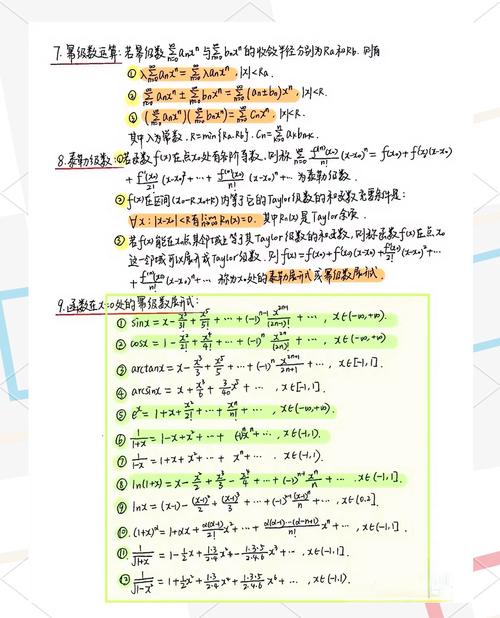 7. 幂级数运算: 若幂级数 ∑_{n=0}^{∞} aₙxⁿ 与 ∑_{n=0}^{∞} bₙxⁿ 的收敛半径分别为Ra和Rb. 则有
① λ∑_{n=0}^{∞} aₙxⁿ = ∑_{n=0}^{∞} λaₙxⁿ, |x|<Ra.
② ∑_{n=0}^{∞} aₙxⁿ ± ∑_{n=0}^{∞} bₙxⁿ = ∑_{n=0}^{∞} (aₙ±bₙ)xⁿ, |x|<R.
③ (∑_{n=0}^{∞} aₙxⁿ)(∑_{n=0}^{∞} bₙxⁿ) = ∑_{n=0}^{∞} Cₙxⁿ, |x|<R.
其中λ为常数. R=min{Ra.Rb}. Cₙ=∑ aₖbₙ₋ₖ.
8. 泰勒级数: ①若函数f(x)在点x₀处有各阶导数, 则称 ∑_{n=0}^{∞} f⁽ⁿ⁾(x₀)/n! (x-x₀)ⁿ = f(x₀)+f'(x₀)(x-x₀)
+ f''(x₀)/2! (x-x₀)² + ⋯ + f⁽ⁿ⁾(x₀)/n! (x-x₀)ⁿ + ⋯ 为泰勒级数.
② f(x)在区间(x₀-R.x₀+R)内等于它的Taylor级数的和函数充要条件是:
∀x: |x-x₀|<R有 lim_{n→∞} Rₙ(x)=0. 其中Rₙ(x)是Taylor余项.
③ 若f(x)能在x₀点某邻域上等于其Taylor级数的和函数, 则称函数f(x)在点x₀
这一邻域可以展开成Taylor级数. 则f(x)=f(x₀)+f'(x₀)(x-x₀)+ f''(x₀)/2! (x-x₀)²+⋯
+ f⁽ⁿ⁾(x₀)/n! (x-x₀)ⁿ+⋯ 称为x₀处的泰勒展开式或幂级数展开式
9. 函数在x=0处的幂级数展开式:
① sinx = x - x³/3! + x⁵/5! + ⋯ + (-1)ⁿ⁻¹ x²ⁿ⁻¹/(2n-1)! + ⋯ , x∈(-∞,+∞).
② cosx = 1 - x²/2! + x⁴/4! + ⋯ + (-1)ⁿ x²ⁿ/(2n)! + ⋯ , x∈(-∞,+∞).
③ arctanx = x - x³/3 + x⁵/5 + ⋯ + (-1)ⁿ x²ⁿ⁺¹/2n+1 + ⋯ , x∈[-1,1].
④ arcsinx = x + x³/6 + 3/40 x⁵ + ⋯ , x∈[-1,1].
⑤ eˣ = 1 + x + x²/2! + ⋯ + xⁿ/n! + ⋯ , x∈(-∞,+∞).
⑥ 1/1+x = 1 - x + x² + ⋯ + (-1)ⁿxⁿ + ⋯ , x∈(-1,1).
⑦ 1/1-x = 1 + x + x² + ⋯ + xⁿ + ⋯ . x∈(-1,1).
⑧ ln(1+x) = x - x²/2 + x³/3 - x⁴/4 + ⋯ + (-1)ⁿ⁻¹ xⁿ/n + ⋯ . x∈(-1,1].
⑨ lnx = (x-1) - (x-1)²/2 + (x-1)³/3 + ⋯ + (-1)ⁿ⁻¹ (x-1)ⁿ/n + ⋯ , x∈(0.2].
⑩. (1+x)^α = 1 + αx + α(α-1)/2! x² + ⋯ + α(α-1)⋯(α-n+1)/n! xⁿ + ⋯ , x∈(-1,1].
⑪. 1/√(1+x) = 1 - 1/2 x + 1·3/2·4 x² - 1·3·5/2·4·6 x³ + ⋯ , x∈(-1,1].
⑫ 1/√(1-x²) = 1 + 1/2 x² + 1·3/2·4 x⁴ + 1·3·5/2·4·6 x⁶ + ⋯ , x∈(-1,1).